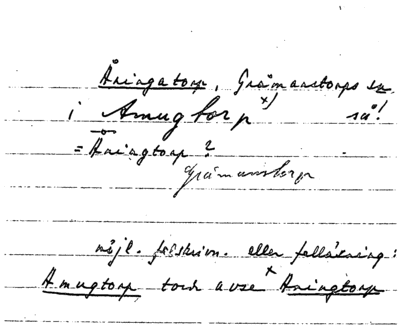 Åringatorp, Gråmanstorps sn
i Amugtorp x) så!
= Åringtorp?
Gråmanstorp
möjl. felskrivn. eller felläsning:
Amugtorp torde avse x Aringtorp